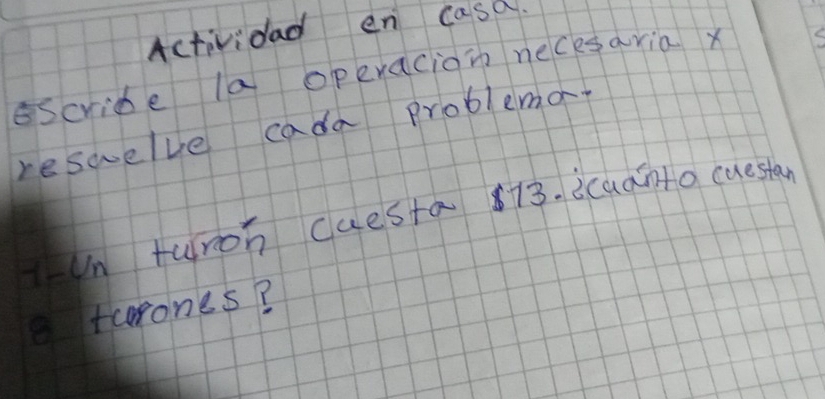 Actividad en casa.
Escribe la operación necesaria x
resuelve cada problema.
1-Un turrón cuesta $13. ¿cuánto cuestan
8 turrones?